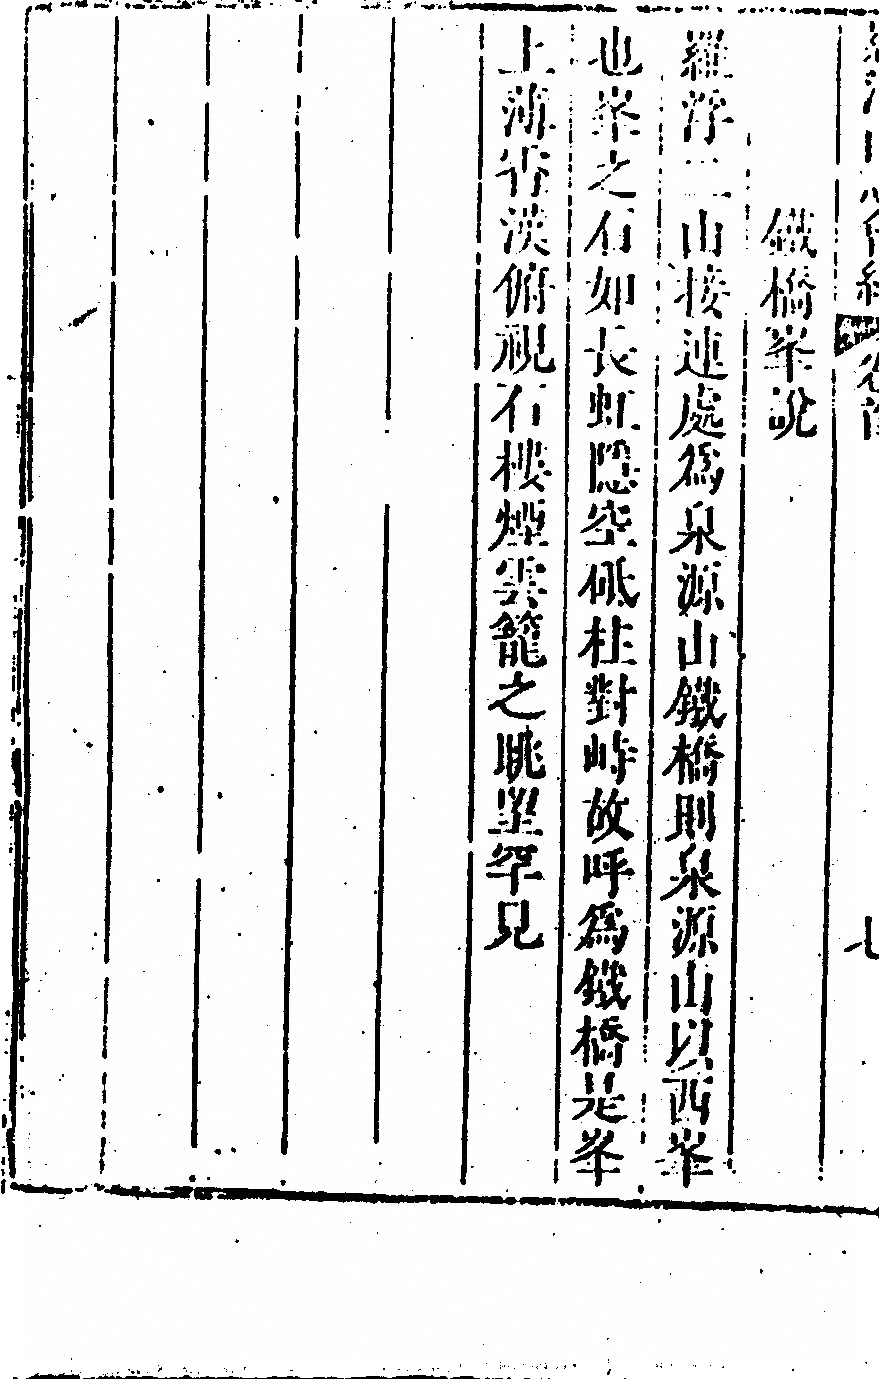 鐵橋峯說
羅浮二山接連處爲泉源山鐵橋則泉源山以西峯
也峯之石如長虹隱空砥柱對峙故呼爲鐵橋是峯
上薄霄漢俯視石樓煙雲籠之眺望罕見